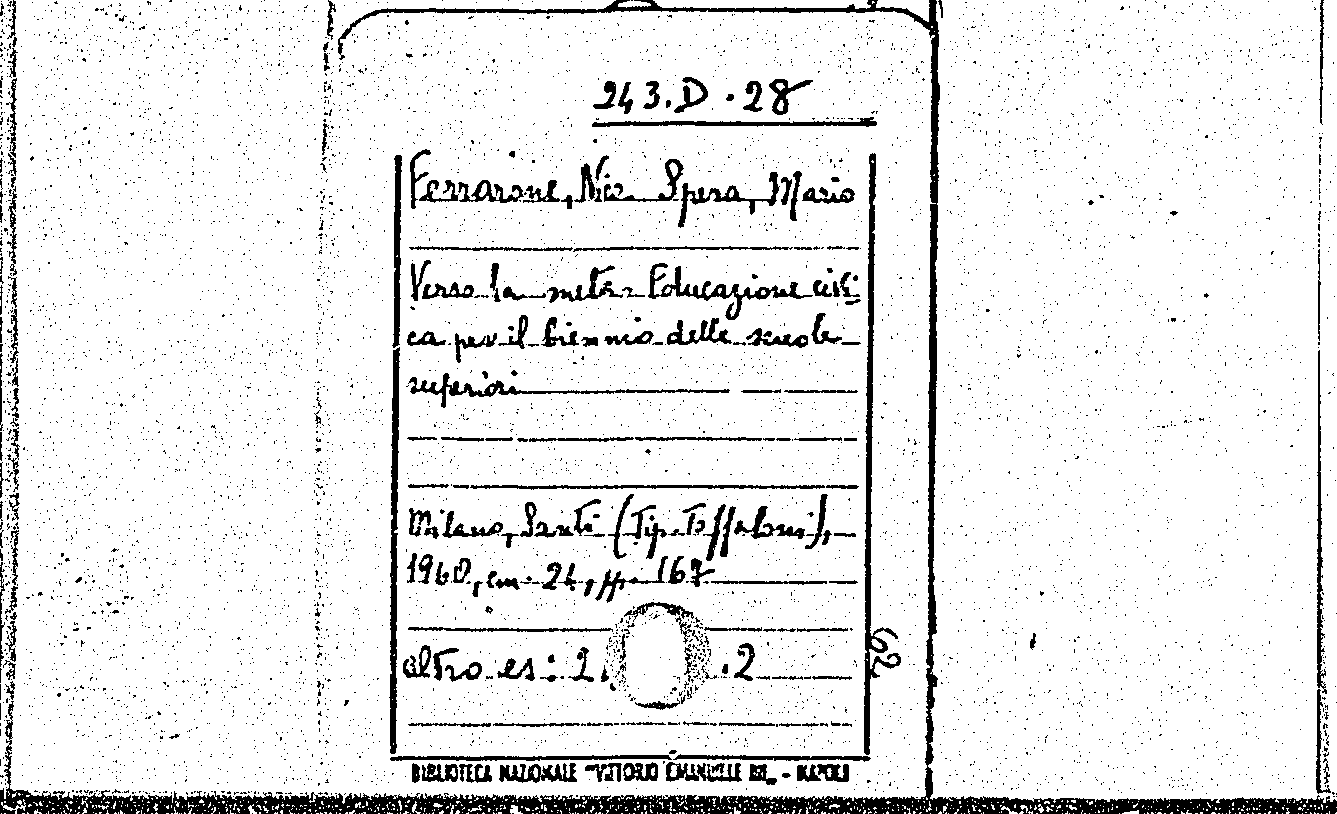 243.D.28
Ferrarone, Nic. Spera, Mario
Verso la meta. Educazione civi=
ca per il biennio delle scuole
superiori
Milano, (Tip. Toffaloni),
1960, cm. 24, pp. 167
altro es: 2. .2
62
BIBLIOTECA NAZIONALE "VITTORIO EMANUELE III„ - NAPOLI